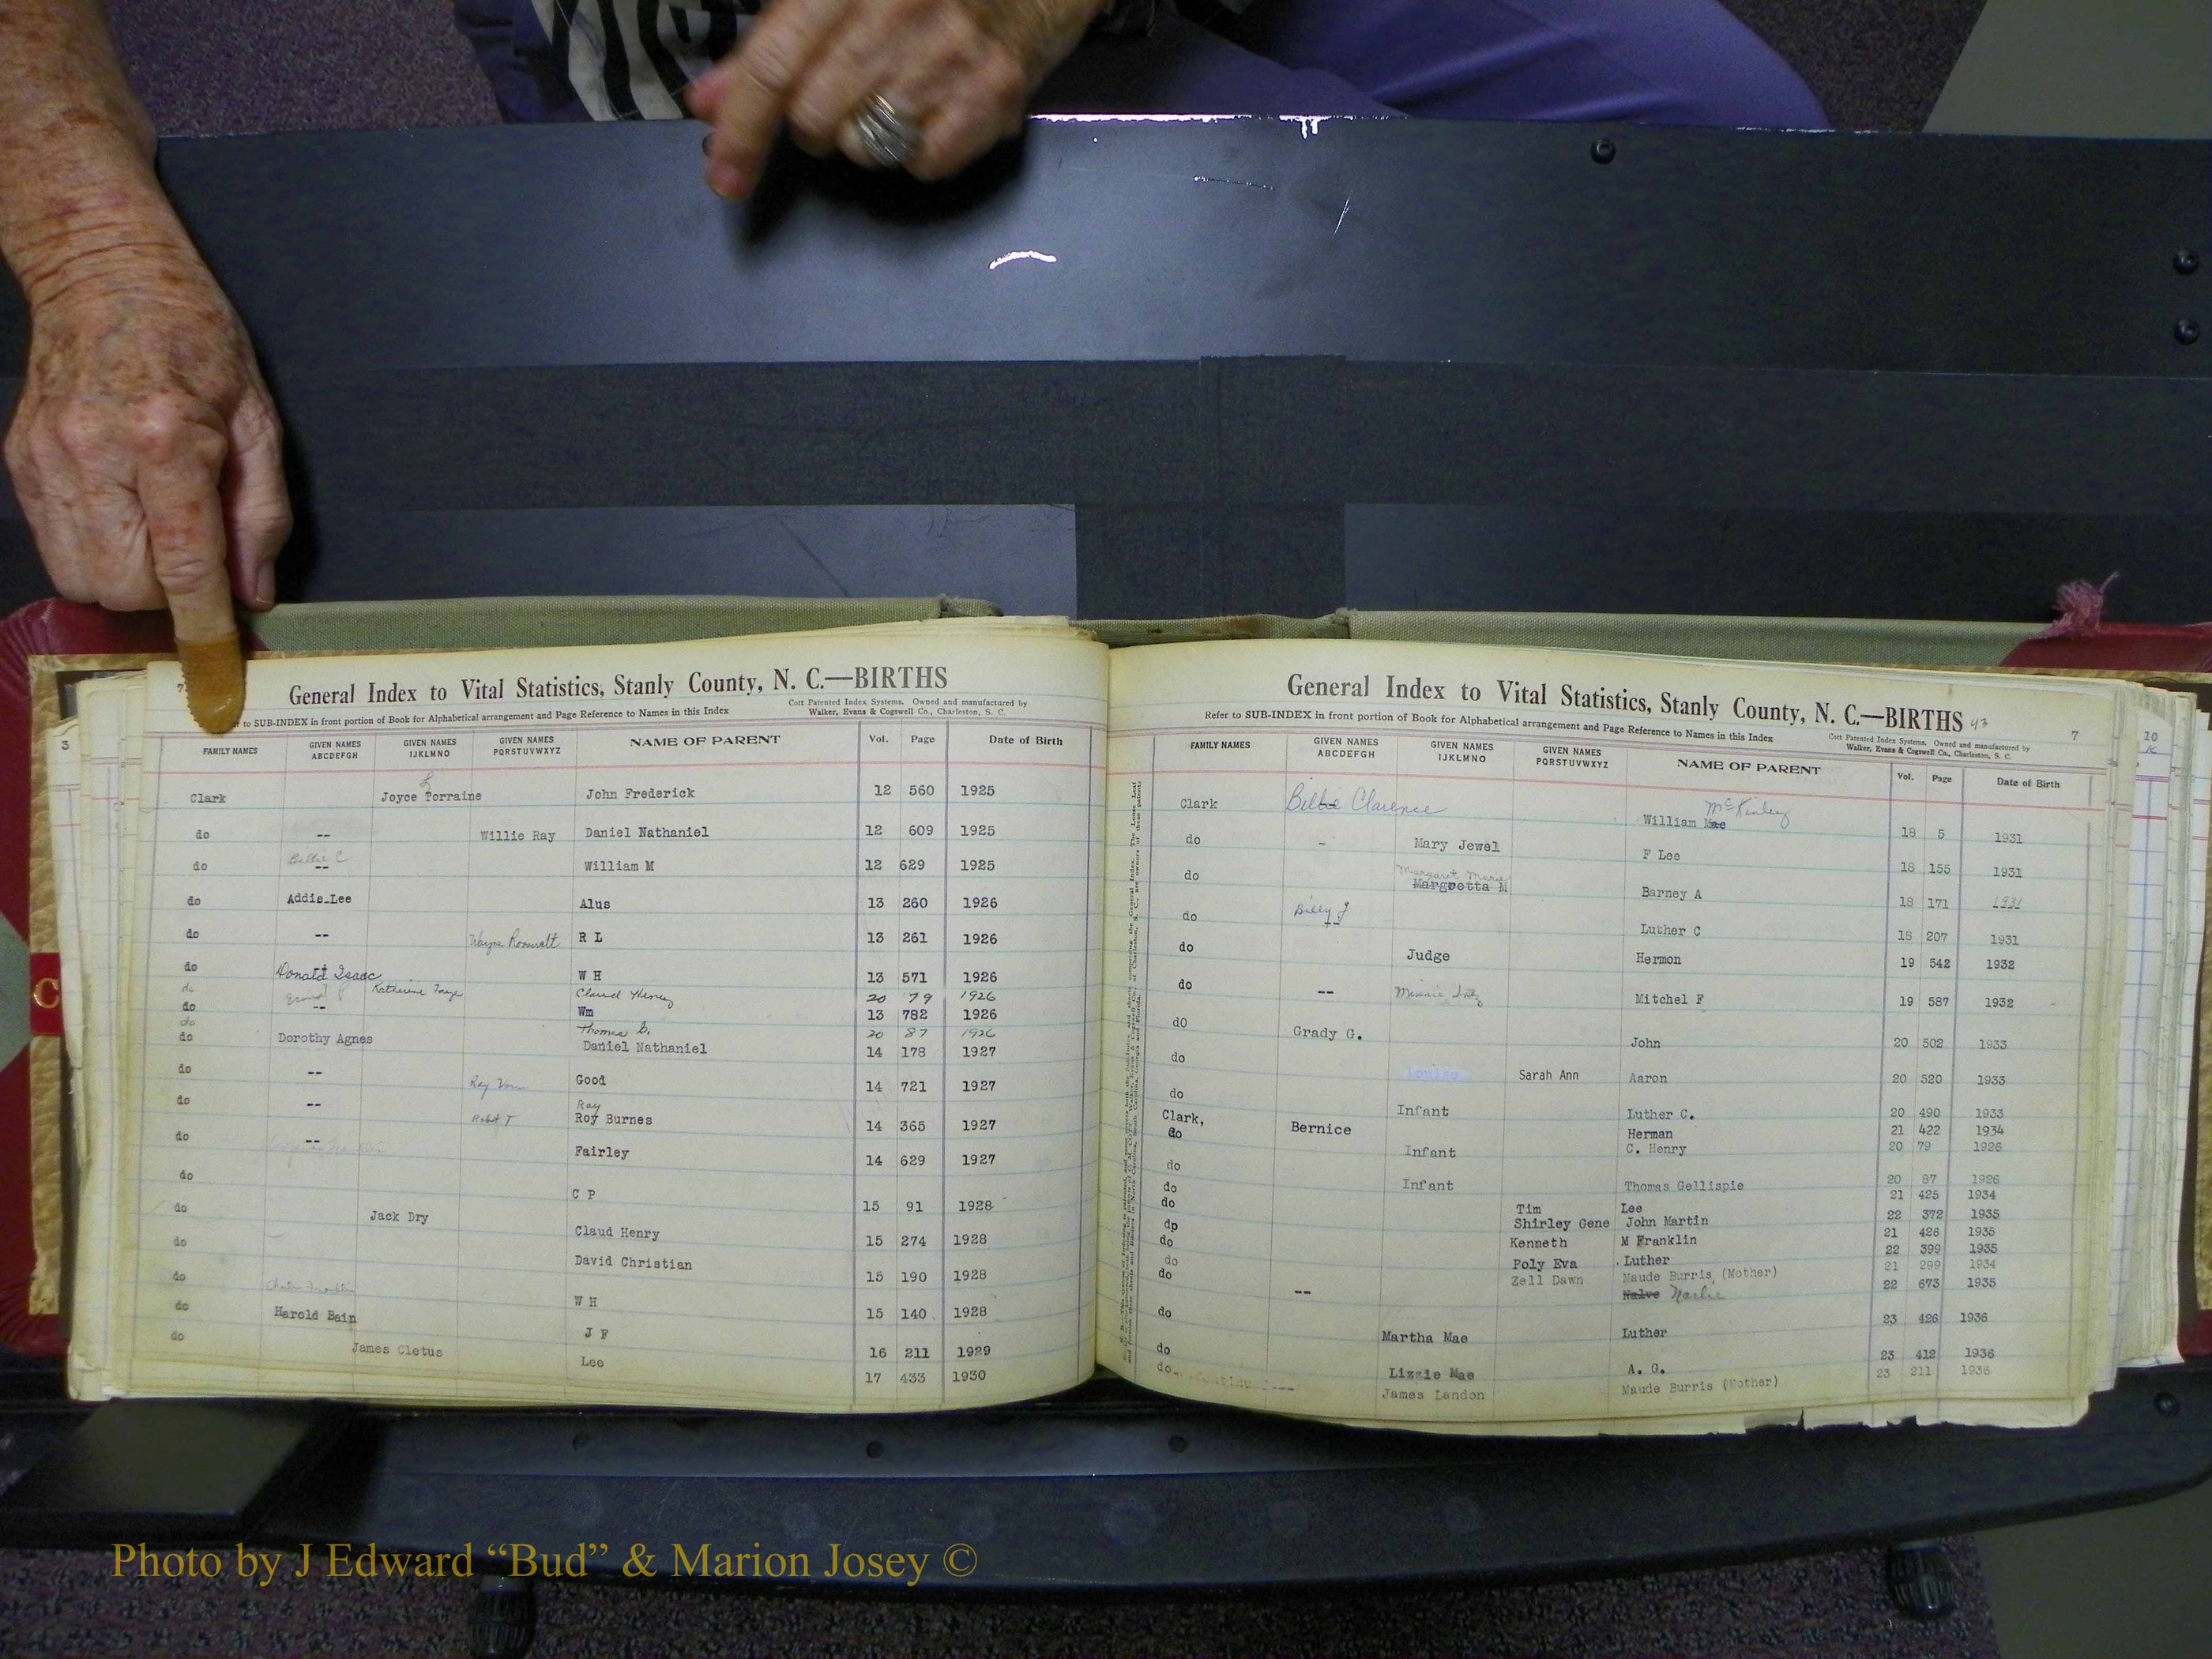 General Index to Vital Statistics, Stanly County, N. C.—BIRTHS
to SUB-INDEX in front portion of Book for Alphabetical arrangement and Page Reference to Names in this Index
Cott Patented Index Systems. Owned and manufactured by
Walker, Evans & Cogswell Co., Charleston, S. C.
FAMILY NAMES GIVEN NAMES ABCDEFGH GIVEN NAMES IJKLMNO GIVEN NAMES PQRSTUVWXYZ NAME OF PARENT Vol. Page Date of Birth
Clark Joyce Torraine L John Frederick 12 560 1925
do -- Willie Ray Daniel Nathaniel 12 609 1925
do Billie C -- William M 12 629 1925
do Addie Lee Alus 13 260 1926
do -- Wayne Roosevelt R L 13 261 1926
do Donald Isaac W H 13 571 1926
do Katherine Faye Claud Henry 20 79 1926
do -- Wm 13 782 1926
do Thomas G. 20 87 1926
do Dorothy Agnes Daniel Nathaniel 14 178 1927
do -- Ray Good 14 721 1927
do -- Robt T Ray Roy Burnes 14 365 1927
do -- Fairley 14 629 1927
do C P 15 91 1928
do Jack Dry Claud Henry 15 274 1928
do David Christian 15 190 1928
do W H 15 140 1928
do Harold Bain J F 16 211 1929
do James Cletus Lee 17 433 1930
General Index to Vital Statistics, Stanly County, N. C.—BIRTHS 43
Refer to SUB-INDEX in front portion of Book for Alphabetical arrangement and Page Reference to Names in this Index
Cott Patented Index Systems. Owned and manufactured by
Walker, Evans & Cogswell Co., Charleston, S. C.
7
FAMILY NAMES GIVEN NAMES ABCDEFGH GIVEN NAMES IJKLMNO GIVEN NAMES PQRSTUVWXYZ NAME OF PARENT Vol. Page Date of Birth
Clark Billie Clarence William Mae McKinley 18 5 1931
do - Mary Jewel F Lee 18 155 1931
do Margaret Marie Margretta M Barney A 18 171 1931
do Billy J -- Luther C 18 207 1931
do Judge Hermon 19 542 1932
do -- Minnie Inez Mitchel F 19 587 1932
do Grady G. John 20 502 1933
do Louise Sarah Ann Aaron 20 520 1933
do Infant Luther C. 20 490 1933
Clark, Bernice Herman 21 422 1934
do Infant C. Henry 20 79 1926
do Infant Thomas Gellispie 20 87 1926
do Tim Lee 21 425 1934
do Shirley Gene John Martin 22 372 1935
dp Kenneth M Franklin 21 426 1935
do Poly Eva Luther 22 399 1935
do Zell Dawn Maude Burris (Mother) 21 299 1934
do -- Nalve Narlie 22 673 1935
do Martha Mae Luther 23 426 1936
do Lizzie Mae A. G. 23 412 1936
do James Landon Maude Burris (Mother) 23 211 1936
3
10
C
Photo by J Edward “Bud” & Marion Josey ©